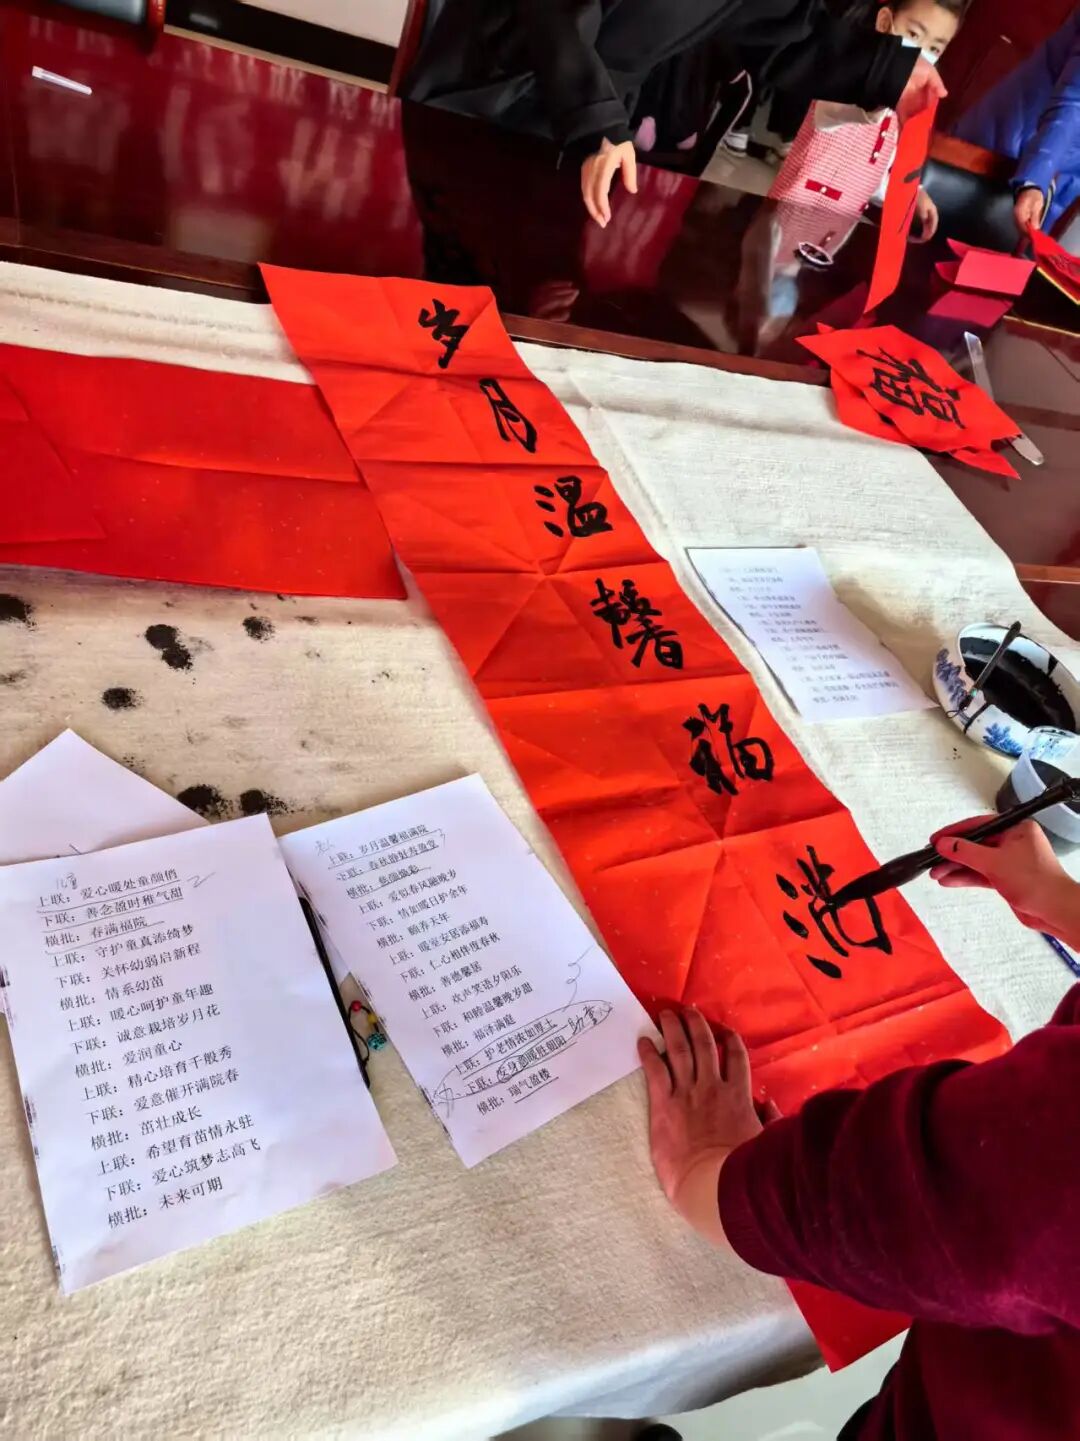 岁月温馨福满
福
儿童
上联：爱心暖处童颜俏
下联：善念盈时稚气甜
横批：春满福院
上联：守护童真添绮梦
下联：关怀幼弱启新程
横批：情系幼苗
上联：暖心呵护童年趣
下联：诚意栽培岁月花
横批：爱润童心
上联：精心培育千般秀
下联：爱意催开满院春
横批：茁壮成长
上联：希望育苗情永驻
下联：爱心筑梦志高飞
横批：未来可期
上联：岁月温馨福满院
上联：春秋静好寿盈堂
横批：焦颜焕彩
上联：爱似春风融晚岁
下联：情如暖日护余年
横批：颐养天年
上联：暖室安居添福寿
下联：仁心相伴度春秋
横批：善德馨居
上联：欢声笑语夕阳乐
下联：和睦温馨晚岁甜
横批：福泽满庭
上联：护老情浓如厚土
下联：孜身恩暖胜朝阳
助童心
横批：瑞气盈楼